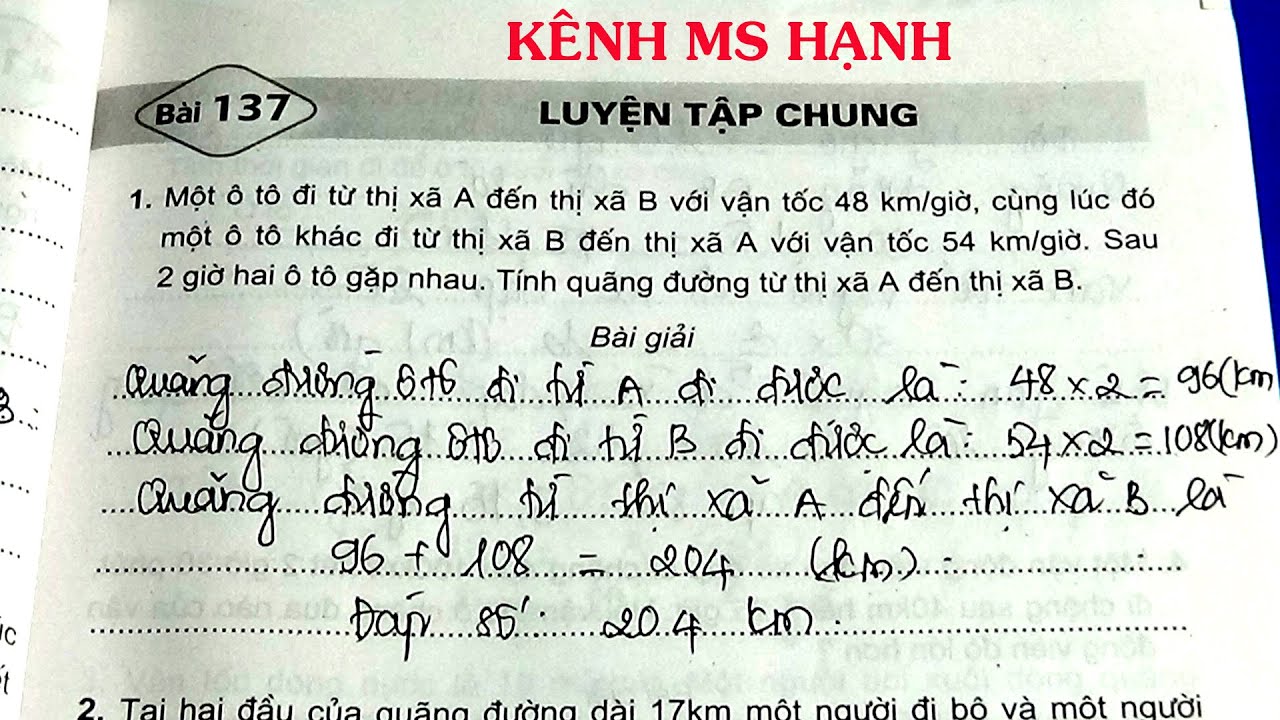 KÊNH MS HẠNH
Bài 137
LUYỆN TẬP CHUNG
1. Một ô tô đi từ thị xã A đến thị xã B với vận tốc 48 km/giờ, cùng lúc đó
một ô tô khác đi từ thị xã B đến thị xã A với vận tốc 54 km/giờ. Sau
2 giờ hai ô tô gặp nhau. Tính quãng đường từ thị xã A đến thị xã B.
Bài giải
Quãng đường ôtô đi từ A đi được là: 48 x 2 = 96 (km
Quãng đường ôtô đi từ B đi được là: 54 x 2 = 108 (km)
Quãng đường từ thị xã A đến thị xã B là
96 + 108 = 204 (km)
Đáp số: 204 km.
2. Tại hai đầu của quãng đường dài 17km một người đi bộ và một người